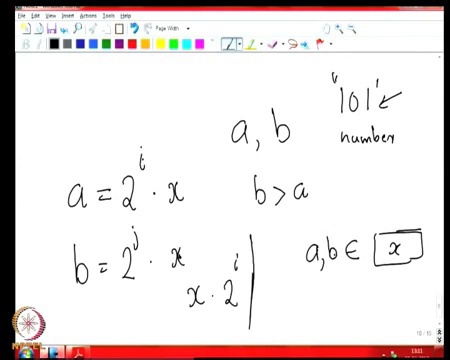 File Edit View Insert Actions Tools Help
Page Width
"101"
number
a, b
a = 2^i · x
b > a
b = 2^j · x
x · 2^i
a, b ∈ x
10 / 10
13:11